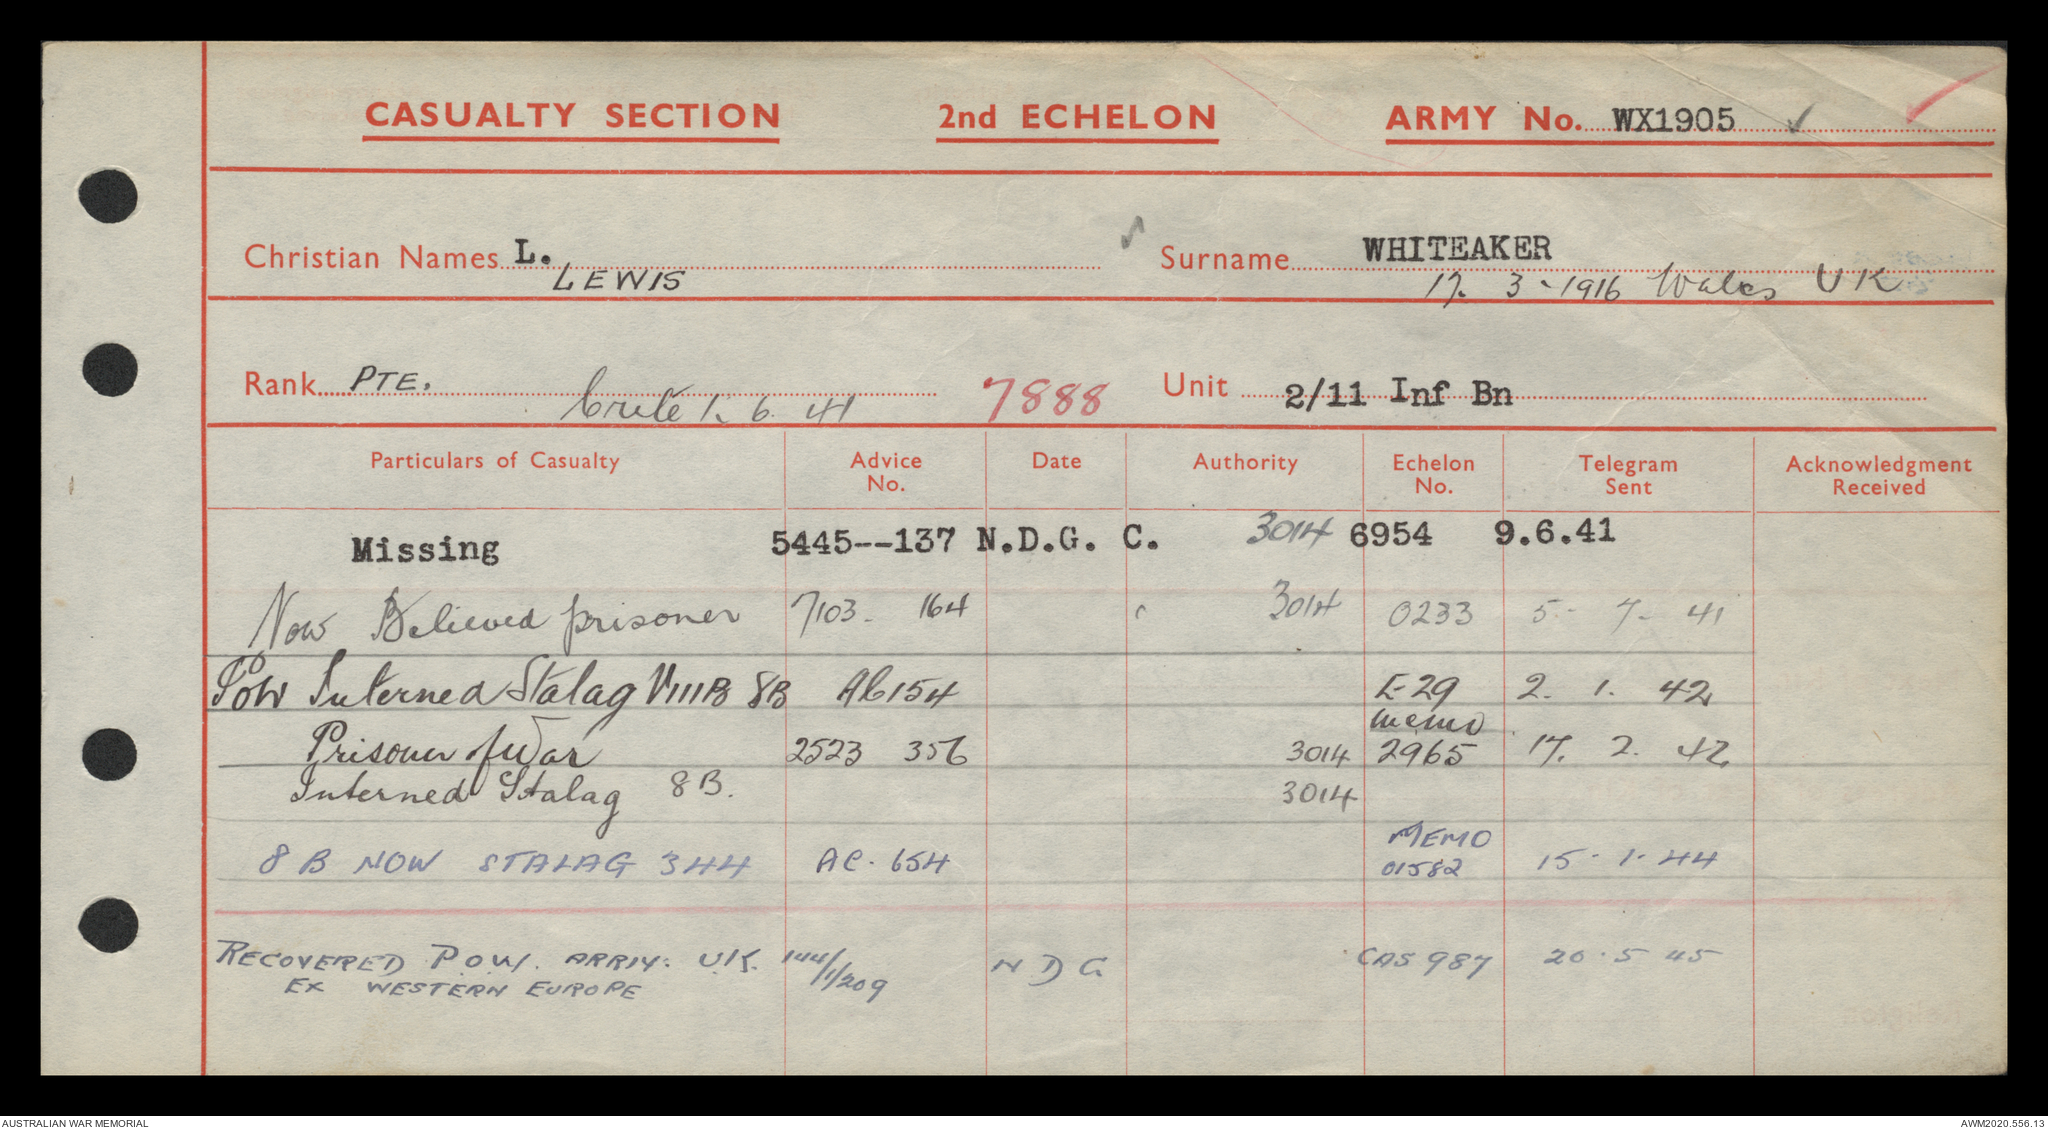 CASUALTY SECTION 2nd ECHELON ARMY No. WX1905
Christian Names L. Surname WHITEAKER
LEWIS 17. 3-1916 Wales UK
Rank PTE. Unit 2/11 Inf Bn
Crete 1. 6. 41 7888
Particulars of Casualty Advice No. Date Authority Echelon No. Telegram Sent Acknowledgment Received
Missing 5445--137 N.D.G. C. 3014 6954 9.6.41
Now Believed prisoner 7103- 164 3014 0233 5- 7- 41
POW Interned Stalag VIIIB 8B AC154 E-29 2. 1. 42
memo
Prisoner of War 2523 356 3014 2965 17. 2. 42
Interned Stalag 8B. 3014
MEMO
8 B NOW STALAG 344 AC. 654 01582 15-1-44
RECOVERED P.O.W. ARRIV: U.K. 144/1/209 N D G CAS 987 20.5 45
EX WESTERN EUROPE
AUSTRALIAN WAR MEMORIAL AWM2020.556.13